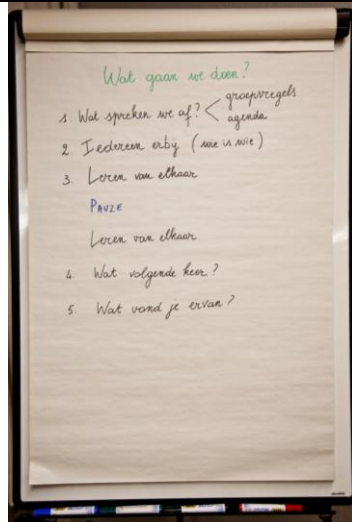 Wat gaan we doen?
1. Wat spreken we af? < groepsregels
agenda
2. Iedereen erbij (wie is wie)
3. Leren van elkaar
PAUZE
Leren van elkaar
4. Wat volgende keer?
5. Wat vond je ervan?